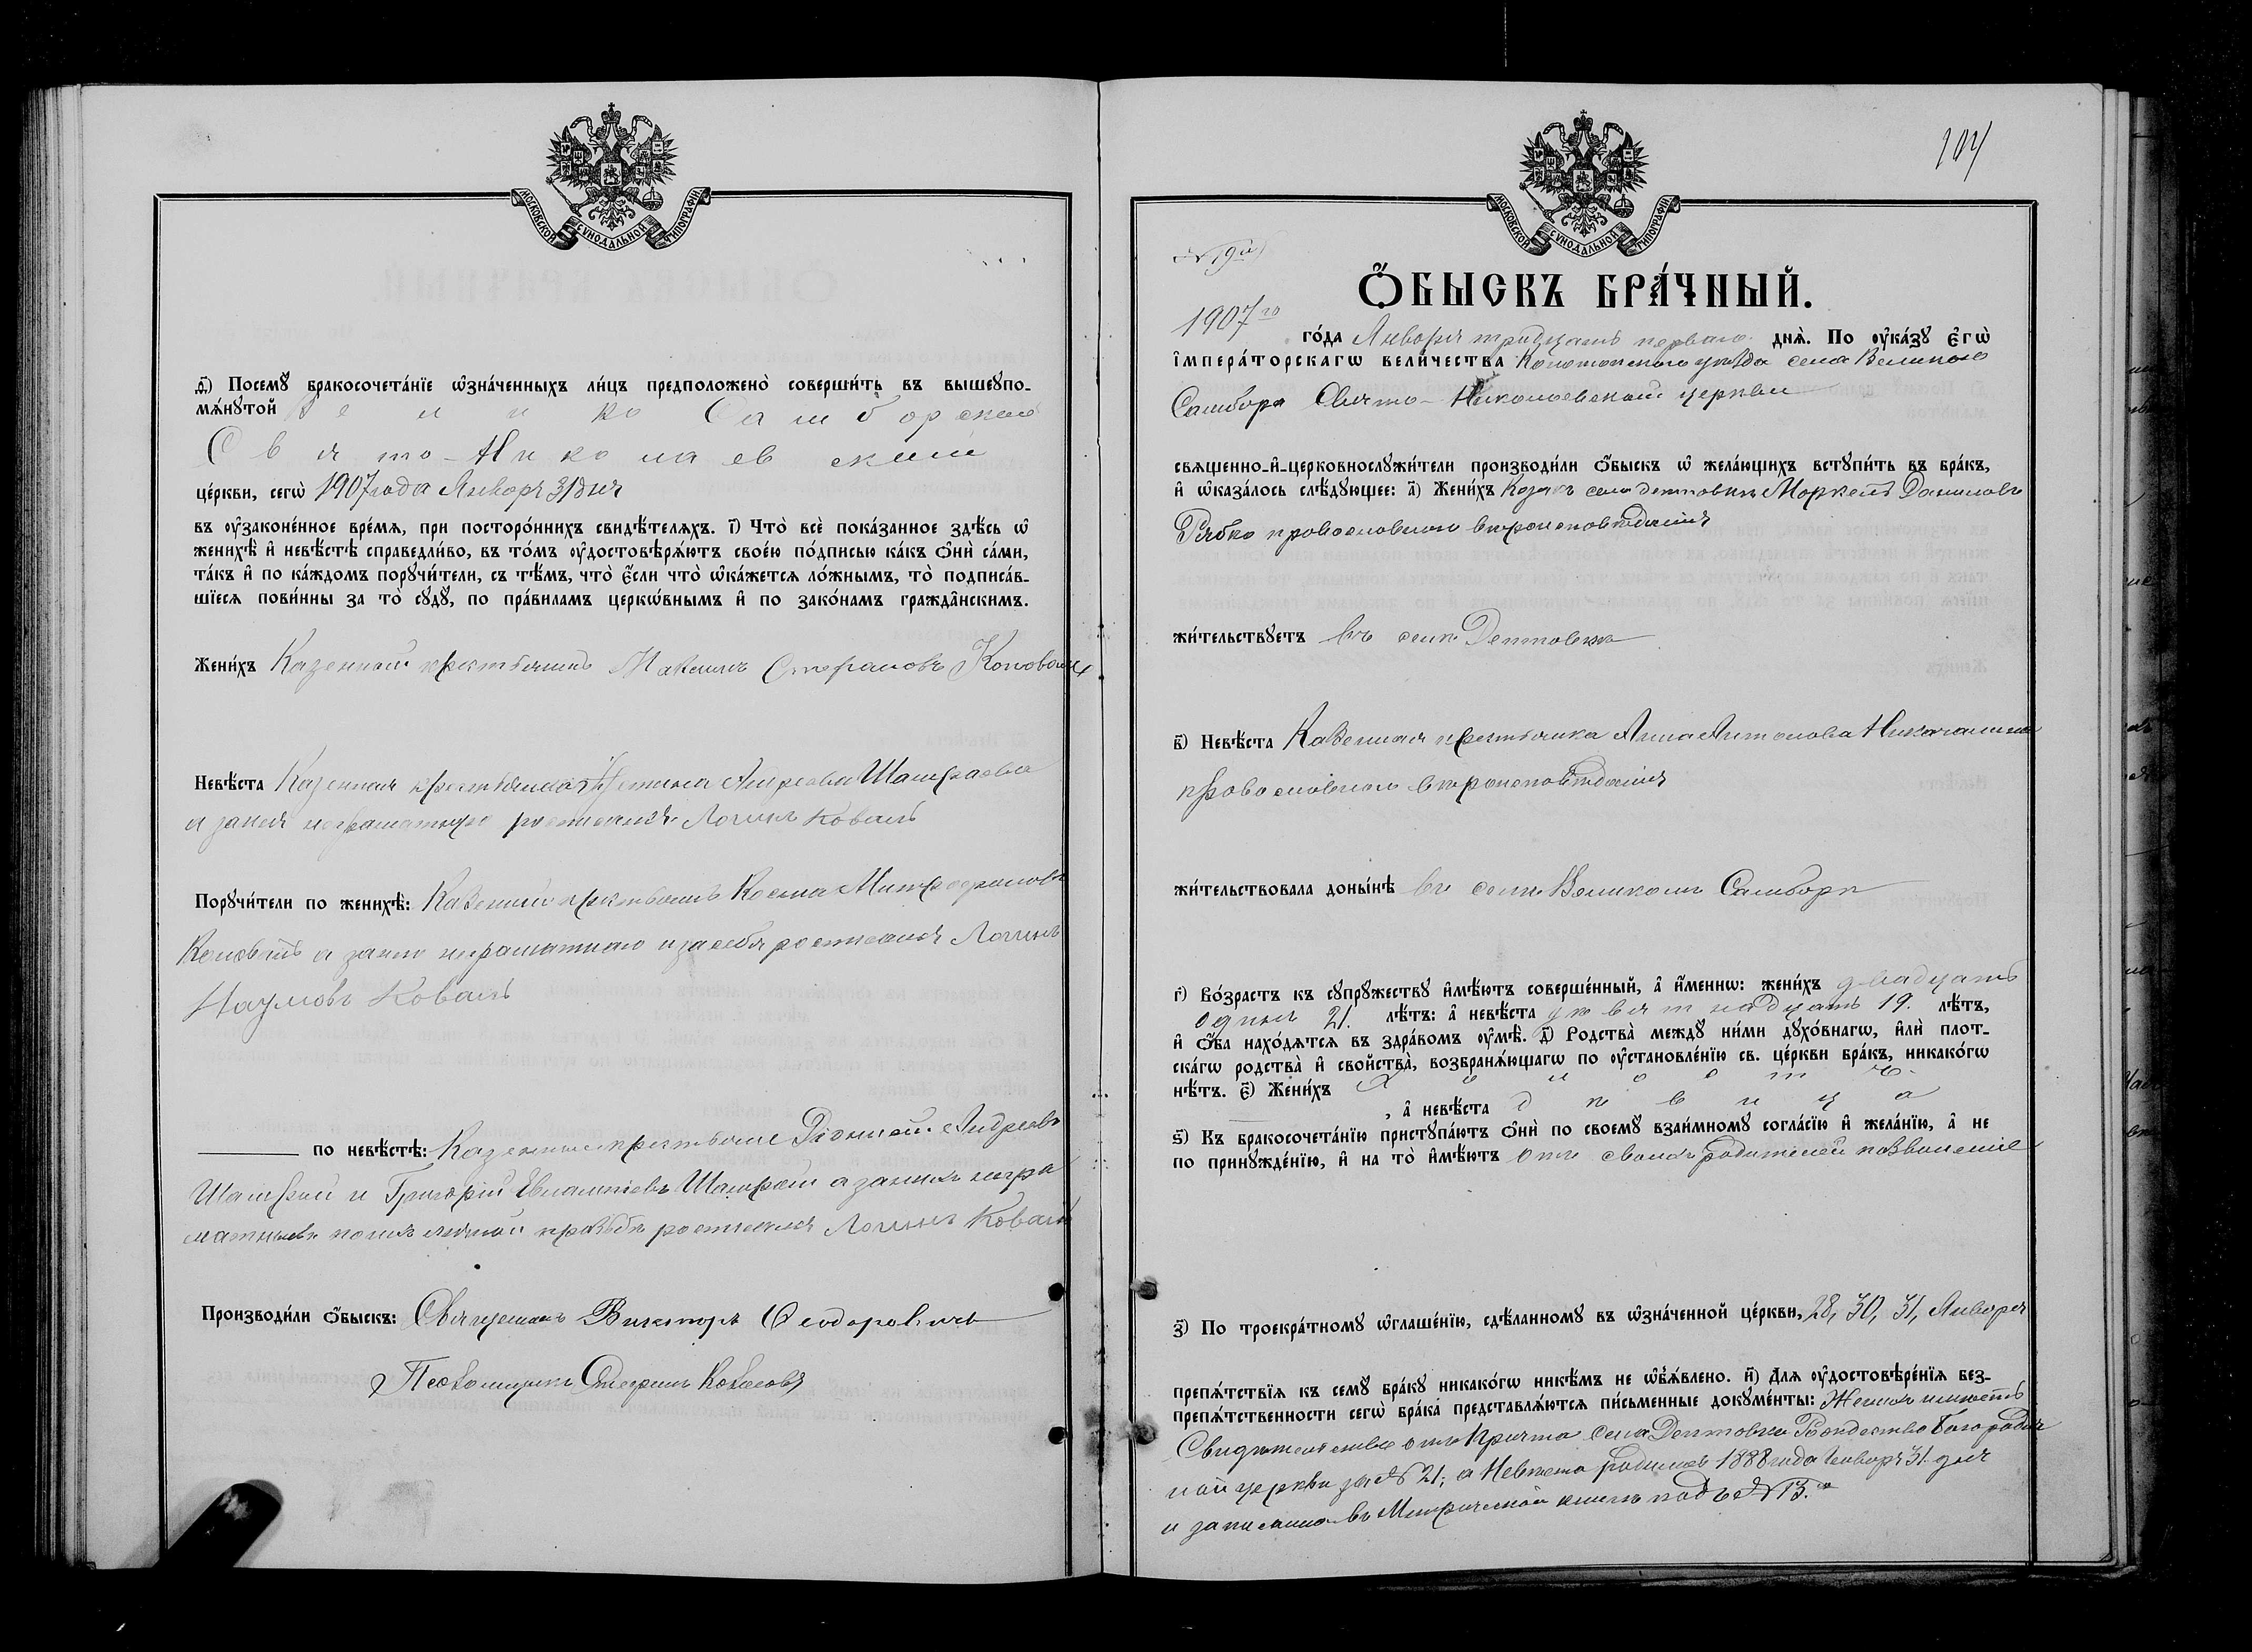 МОСКОВСКОЙ СѴНОДАЛЬНОЙ ТИПОГРАФІИ
д҃) Посемꙋ̀ бракосочета́нїе ѡ҆зна́ченныхъ ли́цъ предположено̀ соверши́ть въ вышеꙋпо-
мѧ́нꙋтой Велико Самборской
Свято-Николаевской
це́ркви, сегѡ̀ 1907 года Января 31 дня
въ ᲂу҆законе́нное вре́мѧ, при посторо́ннихъ свидѣ́телѧхъ. і҃) Что̀ всѐ пока́занное здѣ́сь ѡ҆
женихѣ̀ и҆ невѣ́стѣ справедли́во, въ то́мъ ᲂу҆достовѣрѧ́ютъ свое́ю по́дписью ка́къ ѻ҆нѝ са́ми,
та́къ и҆ по ка́ждомъ порꙋчи́тели, съ тѣ́мъ, что̀ є҆́сли что̀ ѡ҆ка́жетсѧ ло́жнымъ, то̀ подписа́в-
шїесѧ пови́нны за то̀ сꙋдꙋ̀, по пра́виламъ церкѡ́внымъ и҆ по зако́намъ гражда̂нскимъ.
Жени́хъ Казенный крестьянинъ Максимъ Стефановъ Коноваль
Невѣ́ста Казенная крестьянка Андреева Шамраева
а за нея неграматную росписался Логинъ Коваль
Порꙋчи́тели по женихѣ̀: Казенный крестьянинъ Косма Митрофановъ
Коноваль а за него неграматного и за себя росписался Логинъ
Наумовъ Коваль
по невѣ́стѣ: Казенные крестьяне Андреевъ
Шамрай и Григорій Евлампіевъ Шамрай а за нихъ негра
матныхъ по ихъ личной прозьбѣ росписался Логинъ Коваль
Производи́ли ѻ҆́быскъ: Священникъ Викторъ Феодоровичъ
Псаломщикъ Стефанъ
104
№ 19й
Ѻ҆́БЫСКЪ БРА́ЧНЫЙ.
1907го
го́да Января тридцать перваго днѧ̀. По ᲂу҆ка́зꙋ Є҆гѡ̀
і҆мпера́торскагѡ вели́чества Конотопского уѣзда села Великого
Самбора Свято-Николаевской церкви
свѧщенно-и҆-церковнослꙋжи́тели производи́ли ѻ҆́быскъ ѡ҆ жела́ющихъ встꙋпи́ть въ бра́къ,
и҆ ѡ҆каза́лось слѣ́дꙋющее: а҃) Жени́хъ Козакъ села Дептовки Маркелъ Даниловъ
Рябко православного вѣроисповѣданія
жи́тельствꙋетъ въ селѣ Дептовкѣ
МОСКОВСКОЙ СѴНОДАЛЬНОЙ ТИПОГРАФІИ
в҃) Невѣ́ста Казенная крестьянка Анна Антонова
православного вѣроисповѣданія
жи́тельствовала доны́нѣ въ селѣ Великомъ Самборѣ
г҃) Во́зрастъ къ сꙋпрꙋ́жествꙋ и҆мѣ́ютъ соверше́нный, а҆ и҆́меннѡ: жени́хъ двадцать
одинъ 21. лѣ́тъ: а҆ невѣ́ста девятнадцать 19. лѣ́тъ,
и҆ ѻ҆́ба нахо́дѧтсѧ въ здра́вомъ ᲂу҆мѣ̀. д҃) Родства̀ междꙋ̀ ни́ми дꙋхо́внагѡ, и҆лѝ плот-
ска́гѡ родства̀ и҆ свойства̀, возбранѧ́ющагѡ по ᲂу҆становле́нїю св. це́ркви бра́къ, никако́гѡ
нѣ́тъ. є҃) Жени́хъ холостъ
, а҆ невѣ́ста дѣвица
ѕ҃) Къ бракосочета́нїю пристꙋпа́ютъ ѻ҆нѝ по своемꙋ̀ взаи́мномꙋ согла́сїю и҆ жела́нїю, а҆ не
по принꙋжде́нїю, и҆ на то̀ и҆мѣ́ютъ отъ своихъ родителей позволеніе
з҃) По троекра́тномꙋ ѡ҆глаше́нїю, сдѣ́ланномꙋ въ ѡ҆зна́ченной це́ркви, 28, 30, 31, Января
препѧ́тствїѧ къ семꙋ̀ бра́кꙋ никако́гѡ никѣ́мъ не ѡ҆б̾ѧ́влено. и҃) Для ᲂу҆достовѣре́нїѧ без-
препѧ́тственности сегѡ̀ бра́ка представлѧ́ютсѧ пи́сьменные докꙋме́нты: Женихъ имѣетъ
Свидѣтельство отъ Причта села Дептовки Рождество Богородич
ной церкви за № 21; а Невѣста родилась 1888 года Января 31 дня
и записана въ Метрической книгѣ подъ № 13.